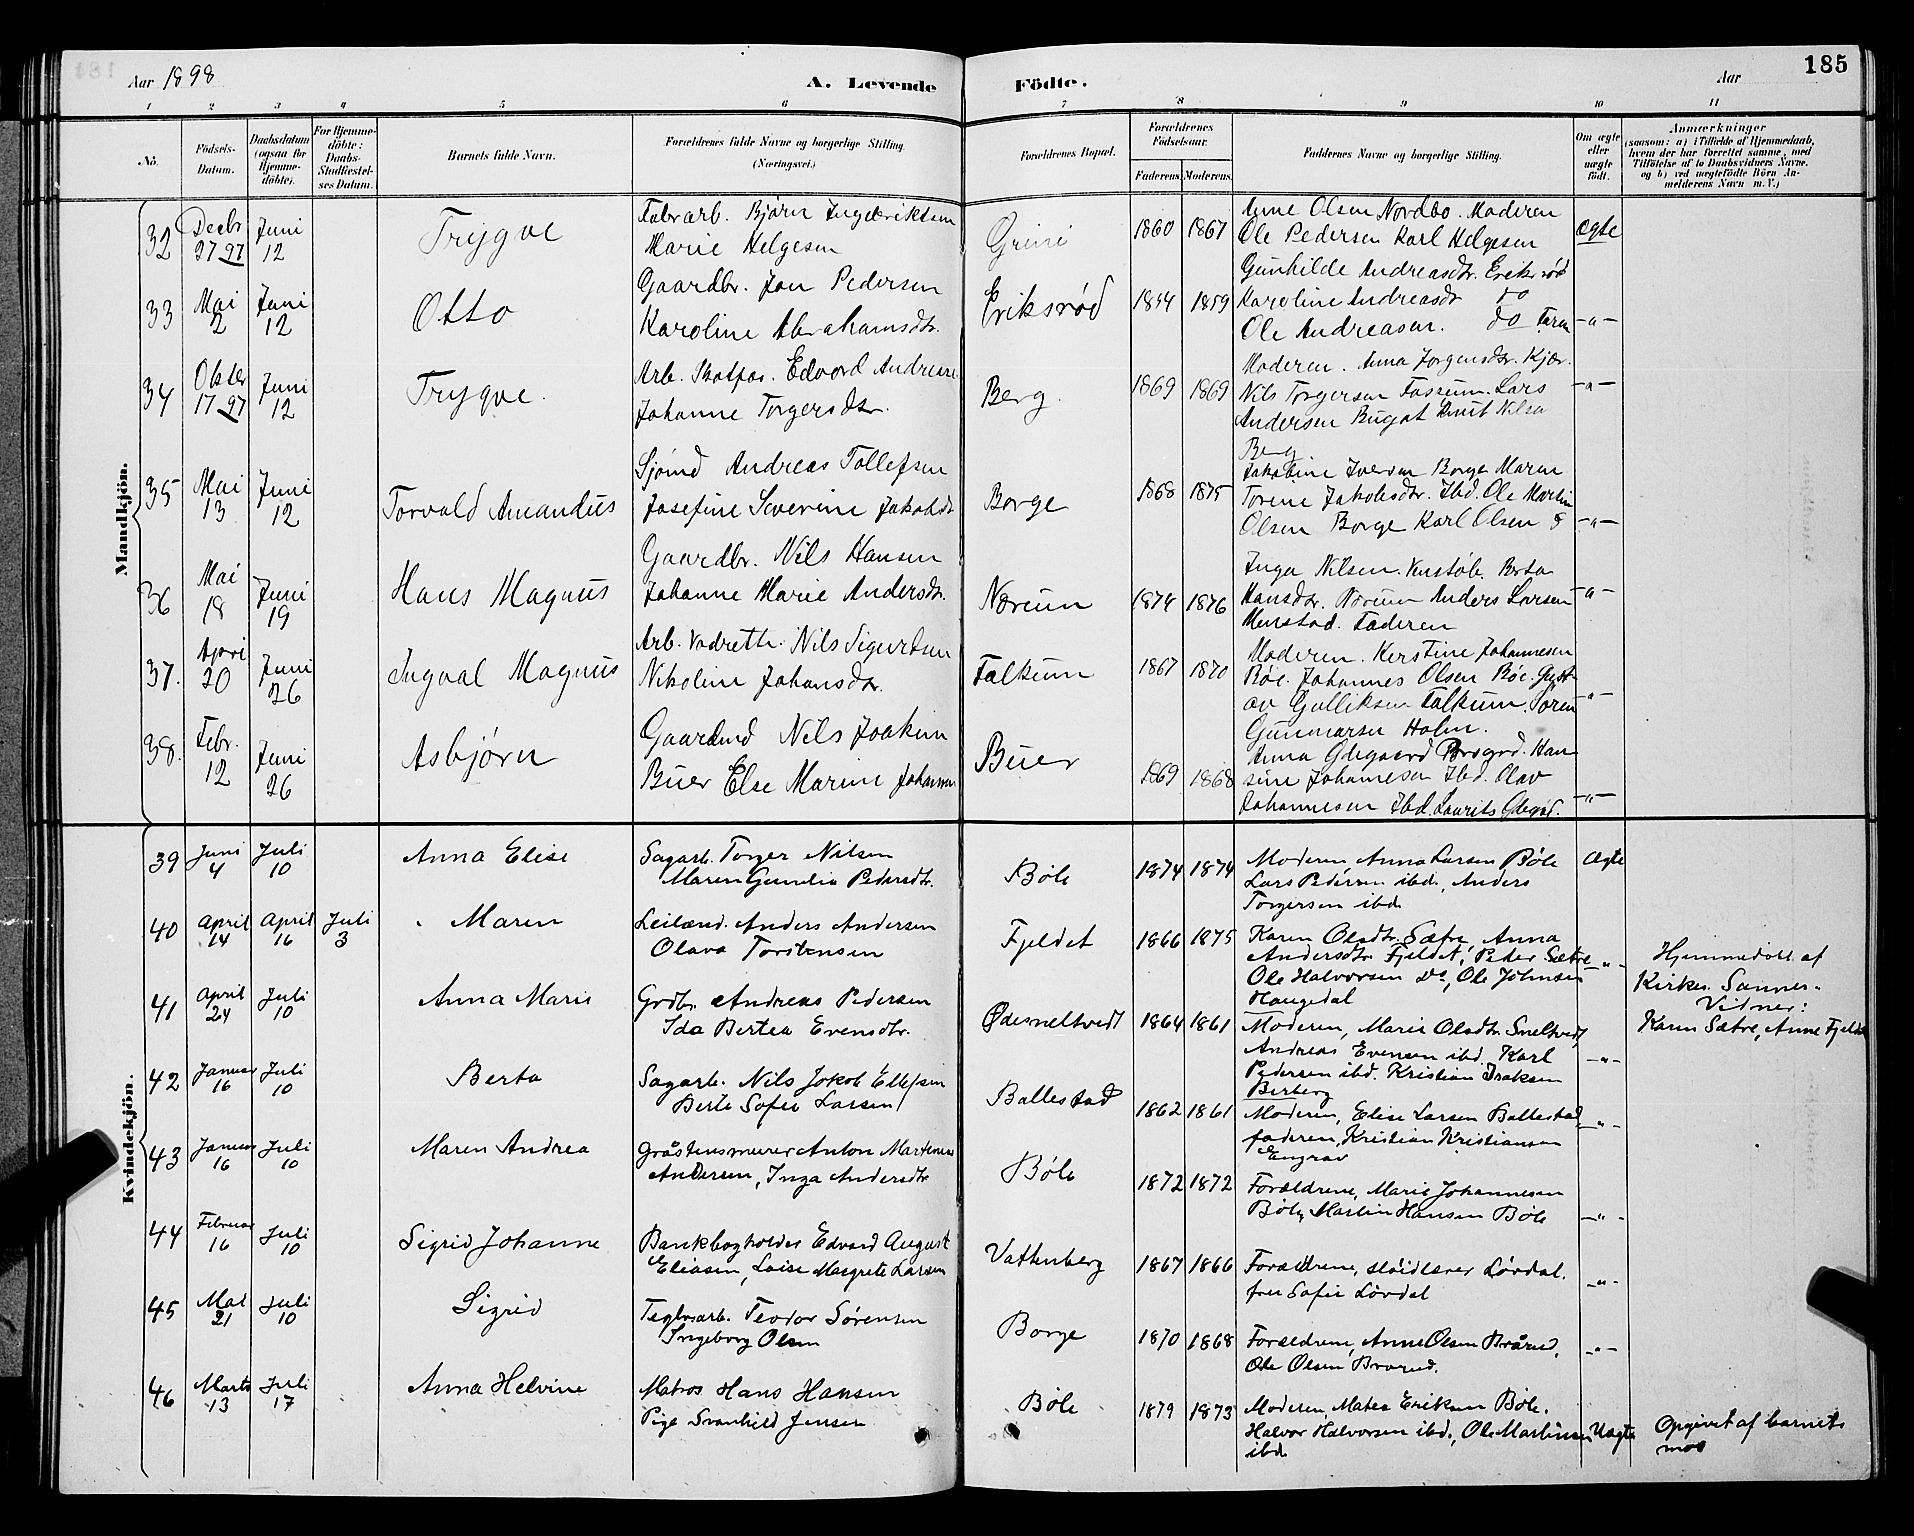 Aar 1898
A. Levende Födte.
Aar
185
1 2 3 4 5 6 7 8 9 10 11
No.
Födsels-Datum.
Daabsdatum (ogsaa for Hjemmedöbte).
For Hjemmedöbte: Daabs-Stadfæstelses Datum.
Barnets fulde Navn.
Forældrenes fulde Navne og borgerlige Stilling. (Næringsvei.)
Forældrenes Bopæl.
Forældrenes Födselsaar.
Faderens. Moderens.
Faddernes Navne og borgerlige Stilling.
Om ægte eller uægte födt.
Anmærkninger
(saasom: a) i Tilfælde af Hjemmedaab, hvem der har forrettet samme, med Tilföielse af to Daabsvidners Navne, og b) ved uægtefödte Börn Anmelderens Navn m. V.)
Mandkjön.
32 Decbr 27 97 Juni 12 Trygve
Fabrarb. Bjørn Ingebriktsen
Marie Helgesen
Grini 1860 1867
Anne Olsen Nordbo. Moderen
Ole Pedersen Karl Helgesen
ægte
33 Mai 2 Juni 12 Otto
Gaardbr. Jon Pedersen
Karoline Abrahamsdtr.
Eriksrød 1854 1859
Gunhilde Andreasdtr. Eriksrød
Karoline Andreasdtr do
Ole Andreasen. do
-"-
34 Okter 17 97 Juni 12 Trygve.
Arb. Skotfos. Edvard Andreasen
Johanne Torgersdtr.
Berg 1869 1869
Moderen. Anna Jorgensdtr. Kjær.
Nils Torgersen Fossum. Lars
Andersen Knut Nilsen
Berg
-"-
35 Mai 13 Juni 12 Torvald Amandus
Sjömd Andreas Tollefsen
Josefine Severine Jakobsdtr
Borge 1868 1875
Jakobine Iversen Borge Maren
Torine Jakobsdtr. Ibd. Ole Martin
Olsen Borge Karl Olsen
-"-
36 Mai 18 Juni 19 Hans Magnus
Gaardbr. Nils Hansen
Johanne Marie Andersdtr.
Nærum 1874 1876
Inga Nilsen. Berta
Hansdtr. Nærum Anders Larsen
Menstad. Faderen
-"-
37. April 20 Juni 26 Ingval Magnus
Arb. Nils Sigurdsen
Nikoline Johansdtr.
Falkum 1867 1870
Moderen. Kerstine Johannesen
Bøe. Johannes Olsen Bøe. Gust-
av Gulliksen Falkum. Søren
Gunnarsen Holm.
-"-
38. Febr. 12 Juni 26 Asbjørn
Gaardmd Nils Joakim
Buer Else Marine Johannesen
Buer 1869 1868
Anna Ødegaard Han-
sine Johannesen Ibd. Olav
Johannesen Ibd. Laurits Ødegrd.
-"-
Kvindekjön.
39 Juni 4 Juli 10 Anna Elise
Sagarb. Torger Nilsen
Maren Gunelia Pedersdtr.
Böle 1874 1874
Moderen, Anna Larsen Böle
Lars Pedersen ibd., Anders
Torgersen ibd.
Ægte
40 April 14 April 16 Juli 3 Maren
Leilænd. Anders Andersen
Olava Torstensen
Fjeldet 1866 1875
Karen Olsdtr. Sætre, Anna
Andersdtr. Fjeldet, Peter Sætre
Ole Halvorsen Do, Ole Johnsen
Haugedal
-"-
Hjemmedöbt af
Kirkes. Sannes-
Vidner:
Karen Sætre, Anne Fjeldet
41 April 24 Juli 10 Anna Marie
Grdbr. Andreas Pedersen
Ida Bertea Evensdtr.
Ødesneltvedt 1864 1861
Moderen, Marie Olsdtr. Sneltvedt,
Andreas Evensen ibd. Karl
Pedersen ibd. Kristian Isaksen
Berberg
-"-
42 Januar 16 Juli 10 Berta
Sagarb. Nils Jakob Ellefsen
Berte Sofie Larsen
Ballestad 1862 1861
Moderen, Elise Larsen Ballestad,
faderen, Kristian Kristiansen
Engrav
-"-
43 Januar 16 Juli 10 Maren Andrea
Gråstensmurer Anton Martinius
Andersen, Inga Andersdtr
Böle 1872 1872
Forældrene, Marie Johannesen
Böle, Martin Hansen Böle
-"-
44 Februar 16 Juli 10 Sigrid Johanne
Bankbogholder Edvard August
Eliasen, Loise Margrete Larsen
Vattenberg 1867 1866
Forældrene, slöidlærer Lövdal,
fru Sofie Lövdal
-"-
45 Mai 21 Juli 10 Sigrid
Teglvarb. Teodor Sörensen
Ingeborg Olsen
Borge 1870 1868
Forældrene, Anne Olsen Brårud,
Ole Olsen Brårud.
-"-
46 Marts 13 Juli 17 Anna Helvine
Matros Hans Hansen
Pige Svanhild Jensen
Böle 1879 1873
Moderen, Matea Eriksen Böle,
Halvor Halvorsen ibd., Ole Martinsen
ibd.
Uægte
Opgivet af barnets
mor